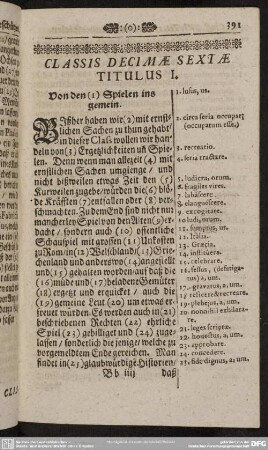 :(o):
391
CLASSIS DECIMÆ SEXTÆ
TITULUS I.
Von den (1) Spielen ins
gemein.
Bißher haben wir (2) mit ernst-
lichen Sachen zu thun gehabt/
in dieser Class wollen wir han-
deln von (3) Ergetzlichkeiten uñ Spie-
len. Denn wenn man allezeit (4) mit
ernstlichen Sachen umgienge / und
nicht bißweilen etwas Zeit den (5)
Kurtzweilen zugebe/würden die (6) blö-
de Kräfften (7) entfallen oder (8) ver-
schmachten. Zu dem End sind nicht nur
mancherley Spiel von den Alten (9) er-
dacht / sondern auch (10) offentliche
Schauspiel mit grossen (11) Unkosten
zu Rom/in (12) Welschland/(13) Grie-
chenland und anderswo (14) angestellt
und (15) gehalten worden/auf daß die
(16) müde und (17) beladene Gemüter
(18) ergetzt und erquicket / und die
(19) gemeine Leut (20) um etwas er-
freuet würden. Es werden auch in (21)
beschriebenen Rechten (22) ehrliche
Spiel (23) gebilliget und (24) zuge-
lassen / sonderlich die jenige/ welche zu
vorgemeldtem Ende gereichen. Man
findet in (25) glaubwürdige Historien/
Bb iiij
daß
1. lusus, us.
2. circa seria occupari
(occupatum esse.)
3. recreatio.
4. seria tractare.
5. ludicra, orum.
6. fragiles vires.
7. labascere.
8. elanguescere.
9. excogitare.
10. ludi, orum.
11. sumptus, us.
12. Italia.
13. Græcia.
14. instituere.
15. celebrare.
16. fessus, (defatiga-
tus) a, um.
17. gravatus, a, um.
18. reficere & recreare.
19. plebejus, a, um.
20. nonnihil exhilara-
re.
21. leges scriptæ.
22. honestus, a, um.
23. approbare.
24. concedere.
25. fide dignus, a, um.